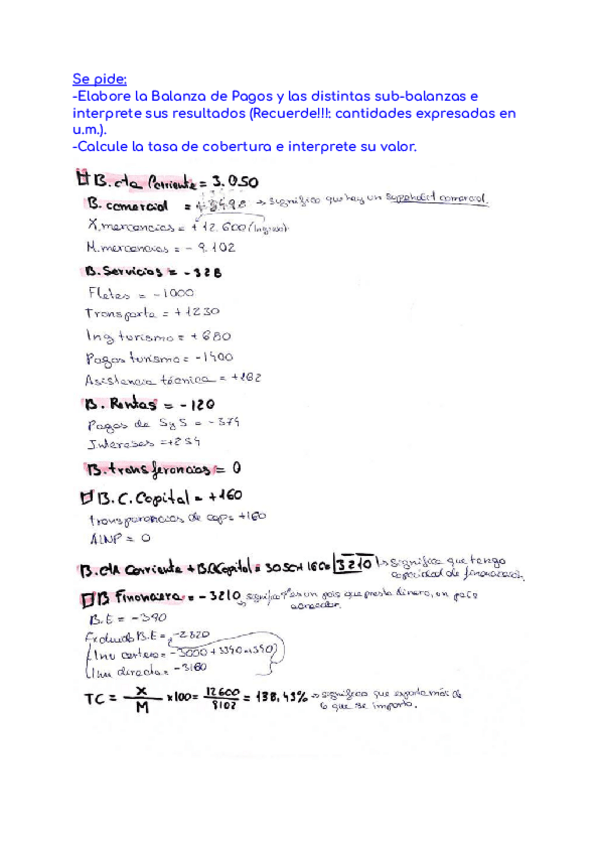 Se pide:
-Elabore la Balanza de Pagos y las distintas sub-balanzas e
interprete sus resultados (Recuerde!!!: cantidades expresadas en
u.m.).
-Calcule la tasa de cobertura e interprete su valor.
B. cta Corriente = 3.050
B. comercial = +3498 → significa que hay un superhabit comercial.
X.mercancias = +12.600 (Ingreso)
M.mercancias = - 9.102
B. Servicios = - 328
Fletes = -1000
Transporte = +1230
Ing turismo = + 680
Pagos turismo = -1400
Asistencia técnica = +162
B. Rentas = - 120
Pagos de S y S = - 374
Intereses = +254
B. transferencias = 0
B. C. Capital = +160
de cap = +160
= 0
B. cta Corriente + B.Capital = 3050 + 160 = 3210 → significa que tengo
capacidad de financiación.
B Financiera = - 3210 → significa es un país que presta dinero, un país
acreedor.
B.E = -390
B.E = -2820
Inv cartera = -3000 +
Inv directa = -3160
TC = X/M ×100 = 12600/9102 = 138,43% → significa que exporta más de
lo que se importa.